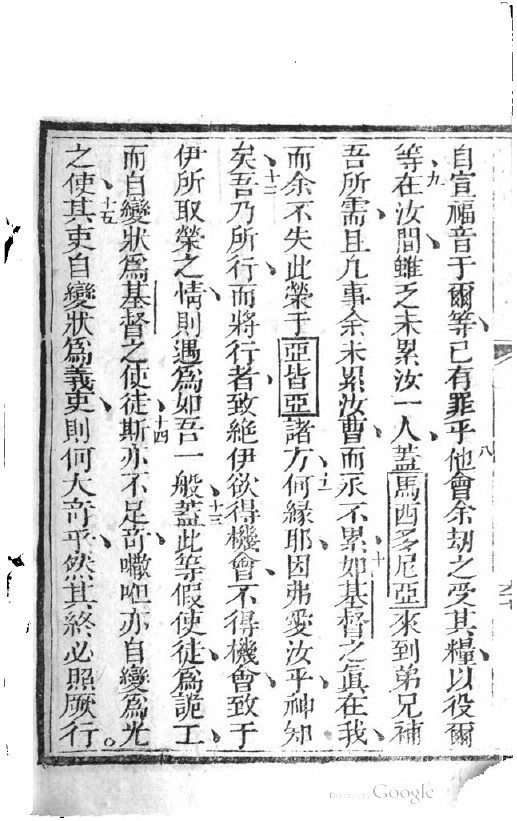 自宣福音于爾等、己有罪乎八他會余刧之受其糧、以役爾
等、九在汝間、雖乏未累汝一人、蓋馬西多尼亞來到弟兄補
吾所需、且凡事余未累汝曹、而永不累、如十基督之眞在我、
而余不失此榮于亞皆亞諸方、十一何緣耶、因弗愛汝乎、神知
矣、十二吾乃所行、而將行者、致絶伊欲得機會、不得機會、致于
伊所取榮之情、則遇爲如吾一般、十三蓋此等假使徒、爲詭工、
而自變狀爲基督之使徒、十四斯亦不足竒、㘔呾亦自變爲光
之使、十五其吏自變狀爲義吏、則何大竒乎、然其終必照厥行。
Google